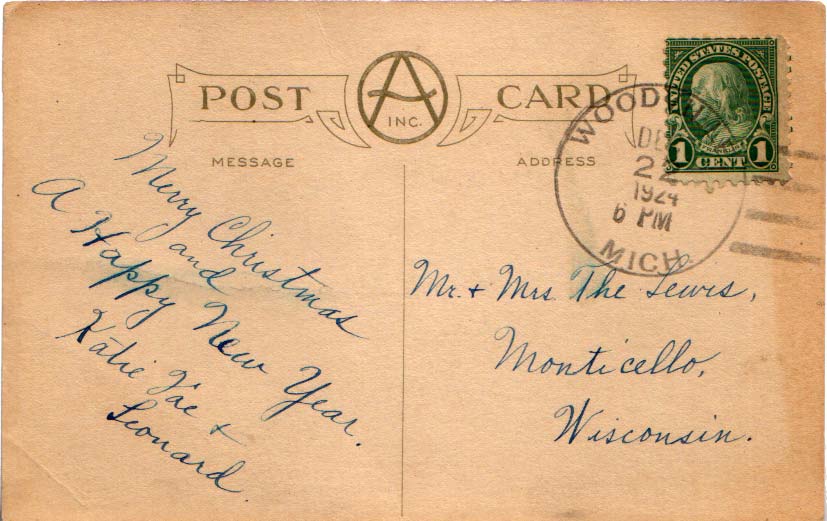 POST CARD
A INC.
MESSAGE
ADDRESS
UNITED STATES POSTAGE
FRANKLIN
1 CENT 1
DE
22
1924
6 PM
MICH.
Merry Christmas
and
A Happy New Year.
Katie Vae +
Leonard.
Mr. + Mrs. The Lewis,
Monticello,
Wisconsin.